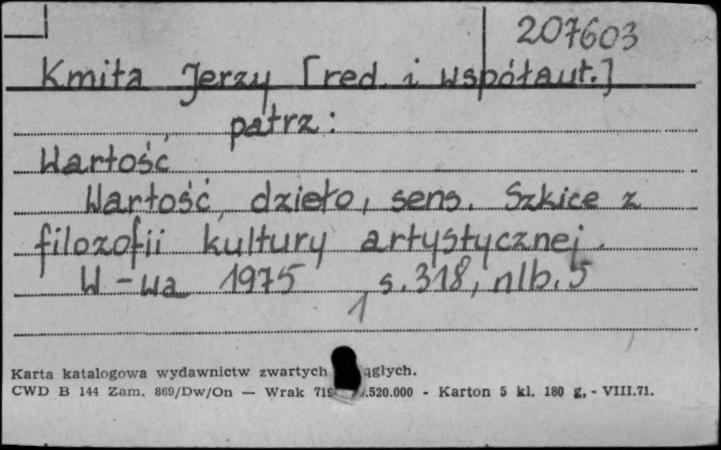 207603
Kmita Jerzy [red. i współaut.]
patrz:
Wartość
Wartość, dzieło, sens. Szkice z
filozofii kultury artystycznej.
W-wa 1975 s.318, nlb.5
1
Karta katalogowa wydawnictw zwartych
CWD B 144 Zam. 869/Dw/On — Wrak .520.000 - Karton 5 kl. 180 g, - VIII.71.